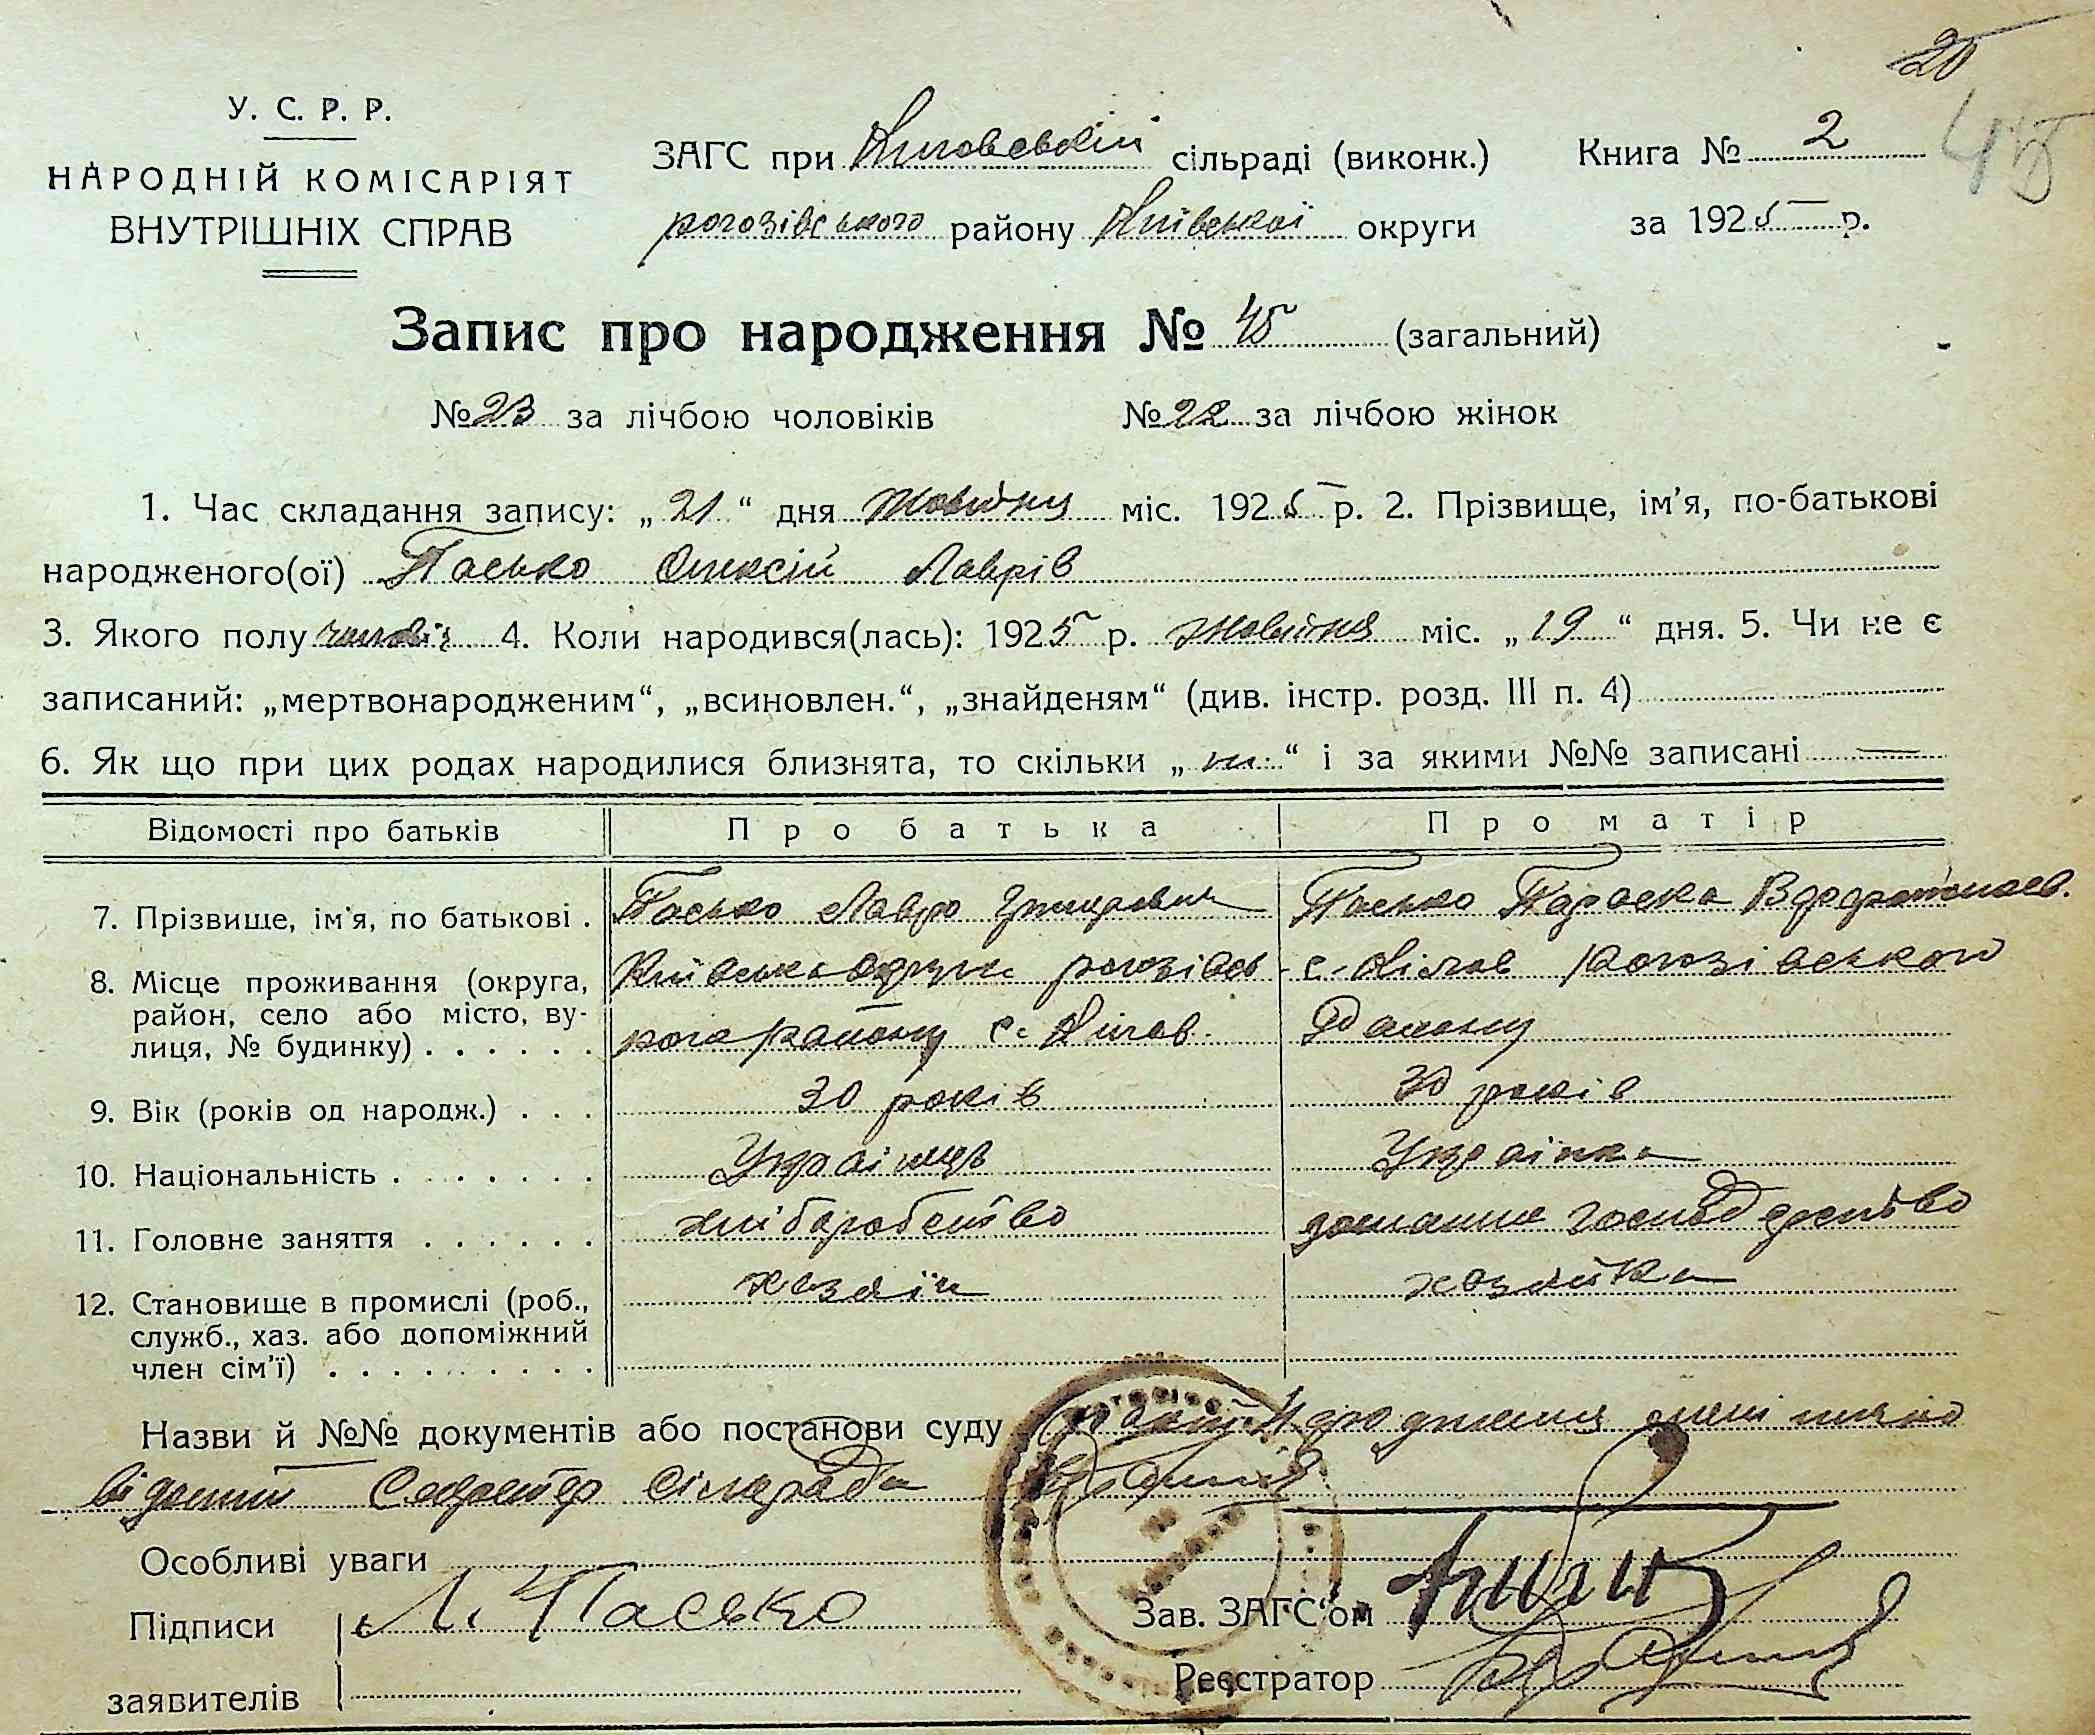 20
45
У. С. Р. Р.
НАРОДНІЙ КОМІСАРІЯТ
ВНУТРІШНІХ СПРАВ
ЗАГС при сільраді (виконк.)
рогозівського району Київської округи
Книга № 2
за 1925 р.
Запис про народження № 45 (загальний)
№ 23 за лічбою чоловіків № 22 за лічбою жінок
1. Час складання запису: „21“ дня Жовтня міс. 1925 р. 2. Прізвище, ім’я, по-батькові
народженого(ої) Пасько Олексій Лаврів
3. Якого полу чоловіч 4. Коли народився(лась): 1925 р. жовтня міс. „19“ дня. 5. Чи не є
записаний: „мертвонародженим“, „всиновлен.“, „знайденям“ (див. інстр. розд. III п. 4)
6. Як що при цих родах народилися близнята, то скільки „ “ і за якими №№ записані —
Відомості про батьків Про батька Про матір
7. Прізвище, ім’я, по батькові . Пасько Лавро Григорович Пасько Параска
8. Місце проживання (округа, район, село або місто, вулиця, № будинку) . . . . . . Київська округа рогозівсь
району с.
с. Рогозівського
Району
9. Вік (років од народж.) . . . 30 років 30 років
10. Національність . . . . . . . Українець Українка
11. Головне заняття . . . . . . хліборобство домашнє господарство
12. Становище в промислі (роб., служб., хаз. або допоміжний член сім’ї) . . . . . . . . . хазяїн хозяйка
Назви й №№ документів або постанови суду
Секретар Сілради
Особливі уваги
Підписи Л. Пасько
заявителів
Зав. ЗАГС‘ом
Реєстратор